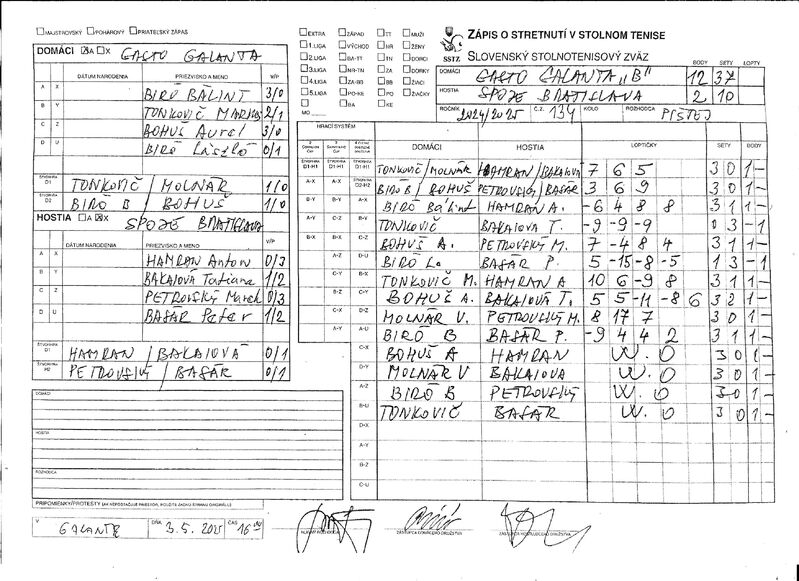 MAJSTROVSKÝ POHÁROVÝ PRIATEĽSKÝ ZÁPAS
DOMÁCI A X GASTO GALANTA
DÁTUM NARODENIA PRIEZVISKO A MENO V/P
A X BIRÓ BÁLINT 3/0
B Y TONKOVIČ MARKUS 2/1
C Z BOHUŠ Aurel 3/0
D U BIRÓ László 0/1
ŠTVORHRA D1 TONKOVIČ / MOLNÁR 1/0
ŠTVORHRA D2 BIRO B / BOHUŠ 1/0
HOSTIA A X SPOJE BRATISLAVA
DÁTUM NARODENIA PRIEZVISKO A MENO V/P
A X HAMRAN Anton 0/3
B Y BAKAIOVÁ Tatiana 1/2
C Z PETROVSKÝ Marek 0/3
D U BASÁR Peter 1/2
ŠTVORHRA D1 HAMRAN / BAKAIOVÁ 0/1
ŠTVORHRA H2 PETROVSKÝ / BASÁR 0/1
DOMÁCI
HOSTIA
ROZHODCA
PRIPOMIENKY/PROTESTY
V GALANTE DŇA 3.5.2025 ČAS 16 00
EXTRA ZÁPAD TT MUŽI
1.LIGA VÝCHOD NR ŽENY
2.LIGA BA-TT TN DORCI
3.LIGA NR-TN ZA DORKY
4.LIGA ZA-BB BB ŽIACI
5.LIGA PO-KE PO ŽIAČKY
BA KE
MO
SSTZ
ZÁPIS O STRETNUTÍ V STOLNOM TENISE
SLOVENSKÝ STOLNOTENISOVÝ ZVÄZ
BODY SETY LOPTY
DOMÁCI GASTO GALANTA „B" 12 37
HOSTIA SPOJE BRATISLAVA 2 10
ROČNÍK 2024/2025 Č.Z. 134 KOLO ROZHODCA PIŠTEJ
HRACÍ SYSTÉM
DOMÁCI HOSTIA LOPTIČKY SETY BODY
ŠTVORHRA D1-H1 ŠTVORHRA D1-H1 ŠTVORHRA D1-H1 TONKOVIČ/MOLNÁR HAMRAN/BAKAIOVÁ 7 6 5 3 0 1 -
A-X A-X D2-H2 BIRO B / BOHUŠ PETROVSKÝ/BASÁR 3 6 9 3 0 1 -
B-Y B-Y A-X BIRÓ Bálint HAMRAN A. -6 4 8 8 3 1 1 -
A-Y C-Z B-Y TONKOVIČ BAKAIOVA T. -9 -9 -9 0 3 - 1
B-X B-X C-Z BOHUŠ A. PETROVSKÝ M. 7 -4 8 4 3 1 1 -
A-Z D-U BIRÓ La BASÁR P. 5 -15 -8 -5 1 3 - 1
C-Y B-X TONKOVIČ M. HAMRAN A 10 6 -9 8 3 1 1 -
B-Z C-Y BOHUČ A. BAKAIOVÁ T. 5 5 -11 -8 6 3 2 1 -
C-X D-Z MOLNÁR V PETROVSKÝ M. 8 17 7 3 0 1 -
A-Y A-U BIRÓ B BASÁR P. -9 4 4 2 3 1 1 -
C-X BOHUŠ A HAMRAN W.O 3 0 1 -
D-Y MOLNÁR V BAKAIOVA W.O 3 0 1 -
A-Z BIRÓ B PETROVSKÝ W.O 3 0 1 -
B-U TONKOVIČ BASÁR W.O 3 0 1 -
D-X
A-Y
B-Z
C-U
HLAVNÝ ROZHODCA ZÁSTUPCA DOMÁCEHO DRUŽSTVA ZÁSTUPCA HOSŤUJÚCEHO DRUŽSTVA